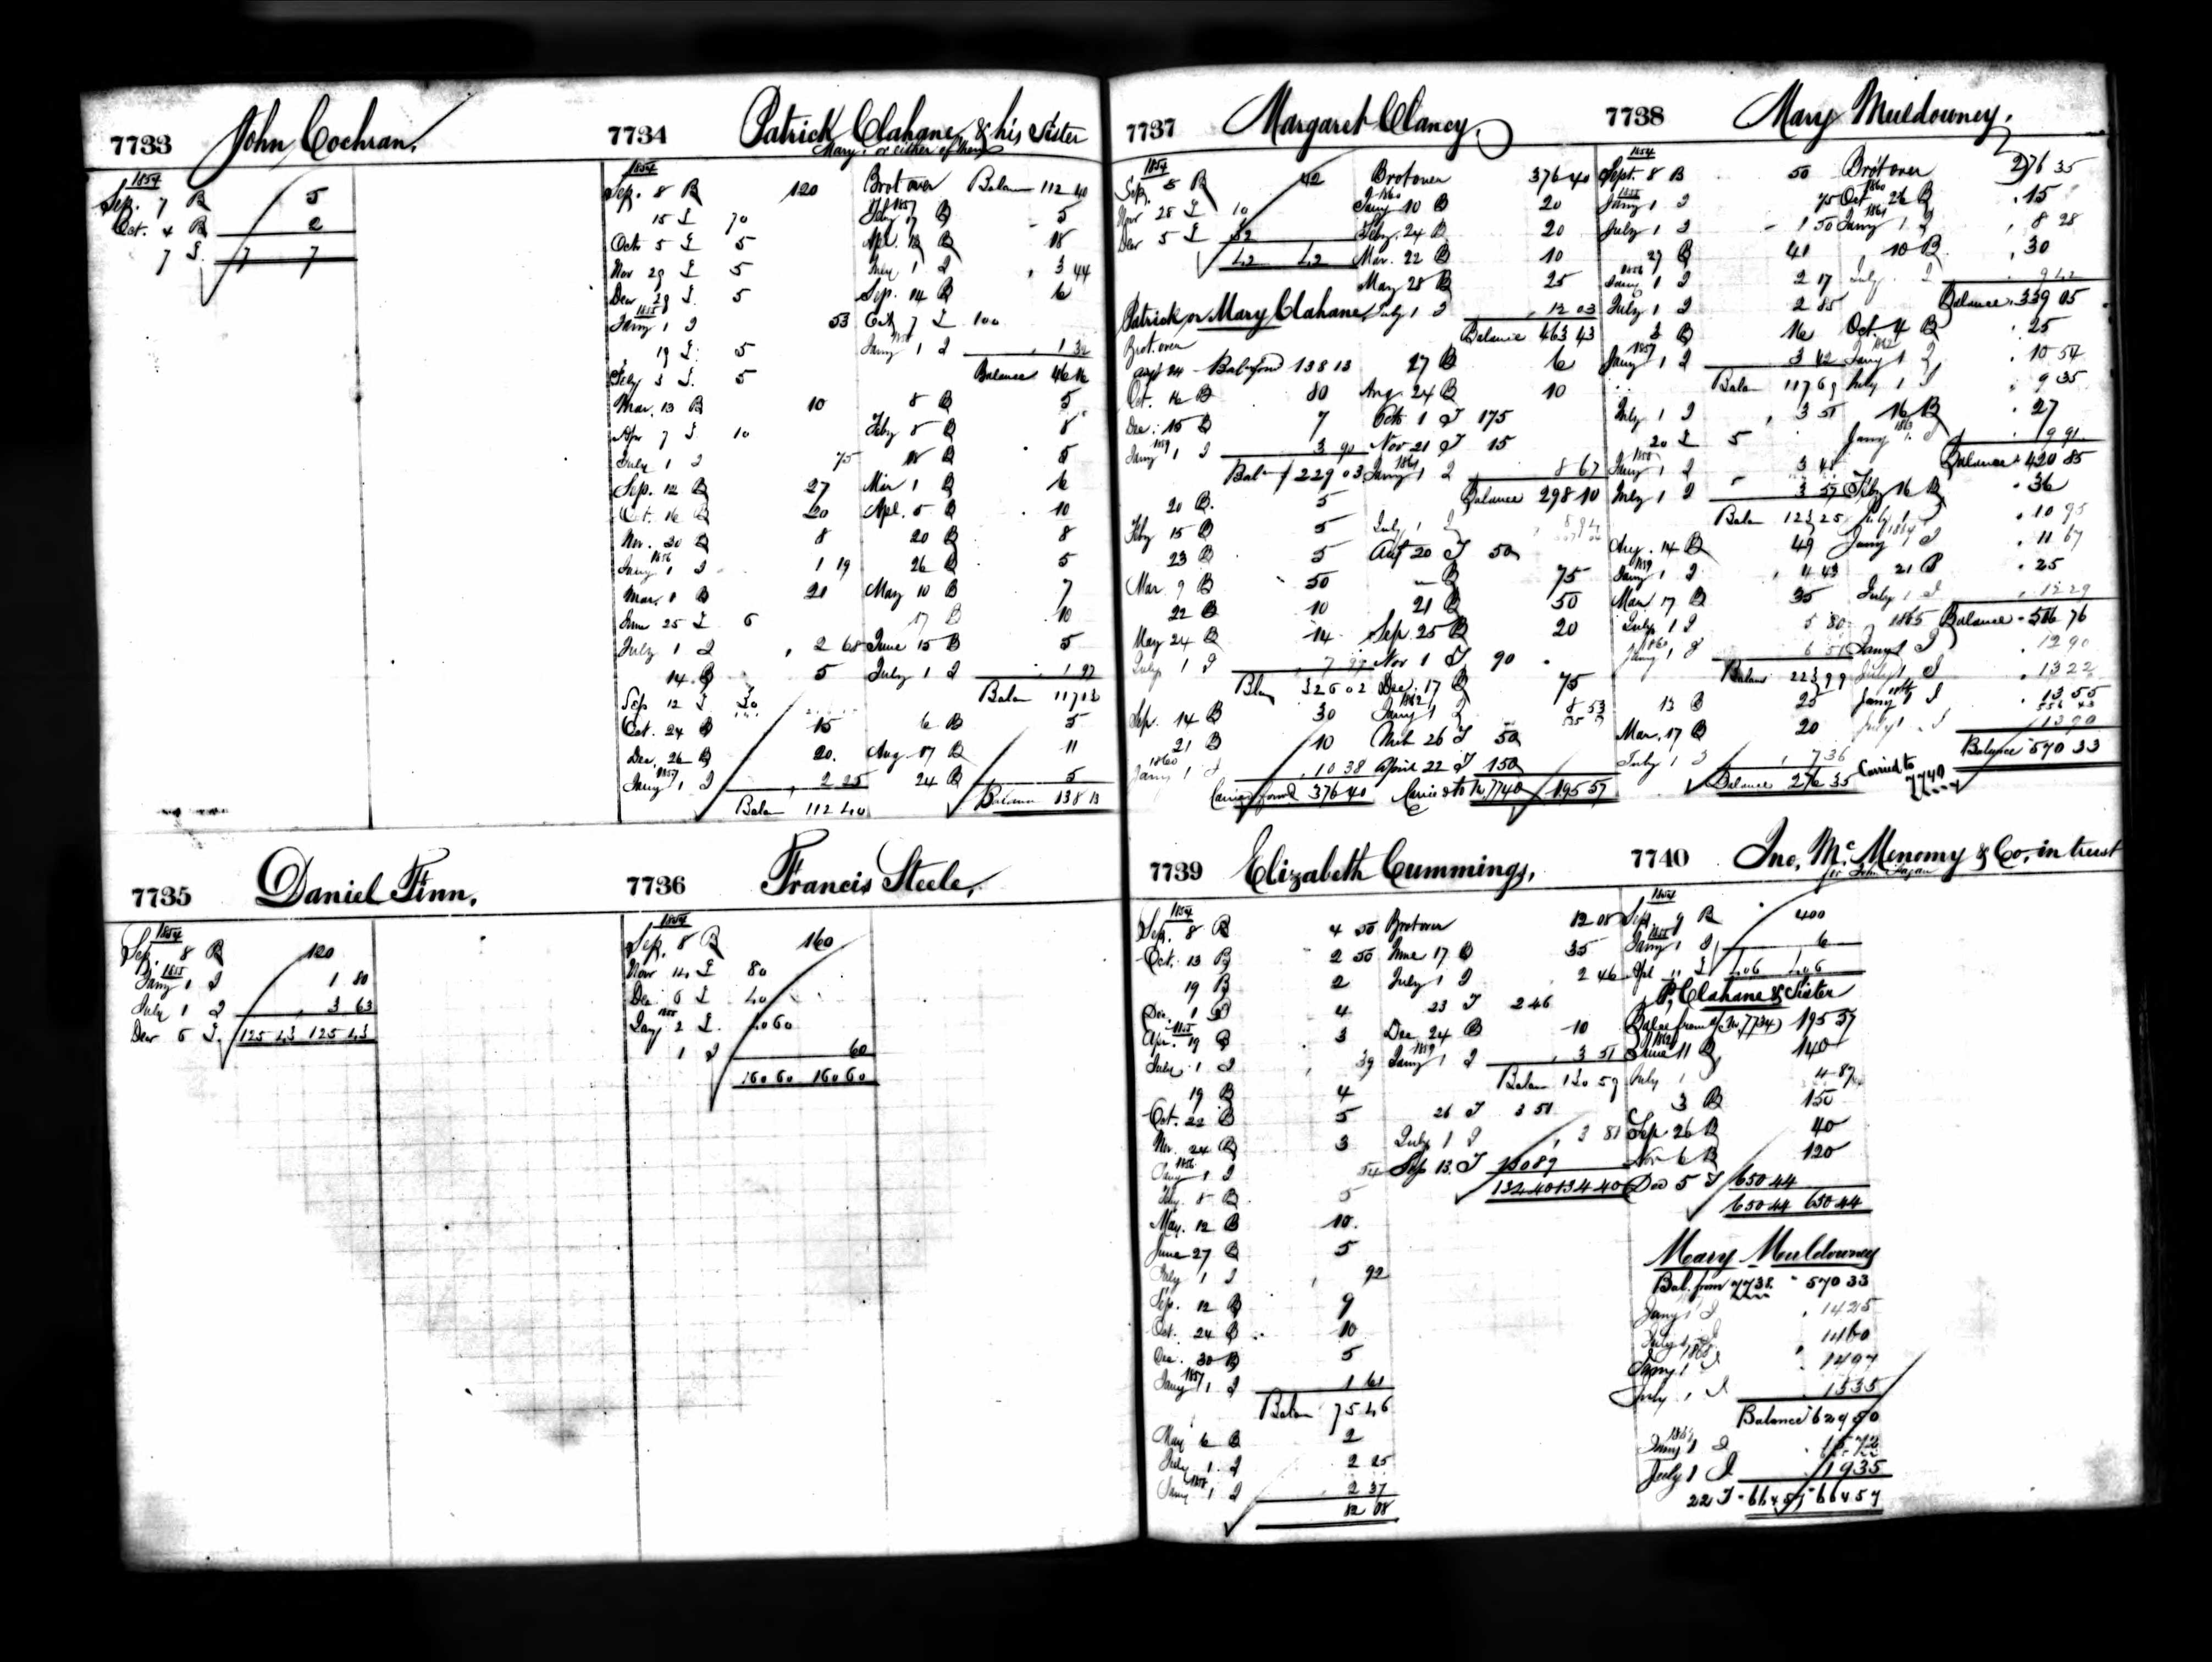 7733 John Cochran.
1854
Sep. 7 B 5
Oct. 4 B 2
7 7 7
7734 Patrick Clahane, & his Sister
Mary, or either of them
1854
Sep. 8 B 120
15 70
Octr 5 5
Nov 29 5
Decr 29 5
1855
Jany 1 53
19 5
Feby 3 5
Mar. 13 B 10
Apr 7 10
July 1 75
Sep. 12 B 27
Oct. 16 B 20
Nov. 20 B 8
1856
Jany 1 1 19
Mar. 8 B 21
June 25 5
July 1 2 68
14 B 5
Sep 12 30
Oct. 24 B 15
Dec. 26 B 20
1857
Jany 1 2 25
Balan 112 40
Brot over Balan 112 40
1857
Feby 17 B 5
Apl. 13 B 18
July 1 3 44
Sep. 14 B 6
Oct. 7 100
Jany 1 1 32
Balance 46 16
8 B 5
Feby 8 B 8
18 B 5
Mar 1 B 6
Apl. 5 B 10
20 B 8
26 B 5
May 10 B 7
17 B 10
June 15 B 5
July 1 1 97
Balan 117 13
6 B 5
Aug. 17 B 11
24 B 5
Balance 138 13
7735 Daniel Finn.
1854
Sep. 8 B 120
1855
Jany 1 1 80
July 1 3 63
Decr 5 125 43 125 43
7736 Francis Steele.
1854
Sep. 8 B 160
Novr 14 80
Dec. 6 40
1855
Jany 2 40 60
1 60
160 60 160 60
7737 Margaret Clancy.
1854
Sep. 8 B 42
Novr 28 10
Decr 5 32
42 42
Patrick or Mary Clahane
Brot. over
Augt 24 Bal. ford 138 13
Oct. 16 B 80
Dec. 15 B 7
1859
Jany 1 3 90
Bal 229 03
20 B. 5
Feby 15 B 5
23 B 5
Mar. 9 B 50
22 B 10
May 24 B 14
July 1 7 99
Bla 326 02
Sep. 14 B 30
21 B 10
1860
Jany 1 10 38
Carried forwd 376 40
Brot over 376 40
1860
Jany 10 B 20
Feby. 24 B 20
Mar. 22 B 10
May 28 B 25
July 1 12 03
Balance 463 43
27 B 6
Aug. 24 B 10
Octr 1 175
Nov 21 15
1861
Jany 1 8 67
Balance 298 10
July 1 8 94
Augt 20 50
B 75
21 B 50
Sep. 25 B 20
Nov 1 90
Dec. 17 B 75
1862
Jany 1 8 53
Mch 26 50
April 22 150
Carried to No 7740 195 57
7738 Mary Muldowney.
1854
Sept. 8 B 50
1855
Jany 1 75
July 1 1 50
27 B 41
1856
Jany 1 2 17
July 1 2 85
3 B 16
1857
Jany 1 3 42
Balan 117 69
July 1 3 51
20 5
1858
Jany 1 3 48
July 1 3 57
Balan 123 25
Aug. 14 B 49
1859
Jany 1 4 43
Mar 17 B 35
July 1 5 80
1860
Jany 1 6 51
Balan 223 99
13 B 25
Mar. 17 B 20
July 1 7 36
Balance 276 35
Brot over 276 35
1860
Oct. 26 B 15
1861
Jany 1 8 28
10 B 30
July 9 42
Balance 339 05
Oct. 4 B 25
1862
Jany 1 10 54
July 1 9 35
16 B 27
1863
Jany 1 9 91
Balance 420 85
Feby 16 B 36
July 1 10 95
1864
Jany 1 11 67
21 B 25
July 1 12 29
1865 Balance 516 76
Jany 1 12 90
July 1 13 22
1866
Jany 1 13 55
556 43
July 1 13 90
Balance 570 33
Carried to
7740
7739 Elizabeth Cummings.
1854
Sep. 8 B 4 50
Oct. 13 B 2 50
19 B 2
Dec. 1 B 4
1855
Apr. 19 B 3
July 1 39
19 B 4
Oct. 22 B 5
Nov. 24 B 3
1856
Jany 1 54
Feby 8 B 5
May. 12 B 10
June 27 B 5
July 1 92
Sep. 12 B 9
Oct. 24 B 10
Dec. 30 B 5
1857
Jany 1 1 61
Balan 75 46
May 6 B 2
July 1 2 25
1858
Jany 1 2 37
82 08
Brot over 82 08
June 17 B 35
July 1 2 46
23 2 46
Dec. 24 B 10
1859
Jany 1 3 51
Balan 130 59
26 3 51
July 1 3 81
Sep 13 130 89
134 40 134 40
7740 Jno. Mc.Menomy & Co. in trust
for John Fagan
1854
Sep. 9 B 400
1855
Jany 1 6
Apl 11 406 406
P. Clahane & Sister
Balce from (No. 7734) 195 57
1862
June 11 B 140
July 1 4 87
3 B 150
Sep 26 B 40
Nov 6 B 120
Dec 5 650 44
650 44 650 44
Mary Muldowney
Bal. from 7738 570 33
Jany 1 14 25
July 1 14 60
1868
Jany 1 14 97
July 1 15 35
Balance 629 50
1869
Jany 1 15 72
July 1 19 35
22 664 57 664 57